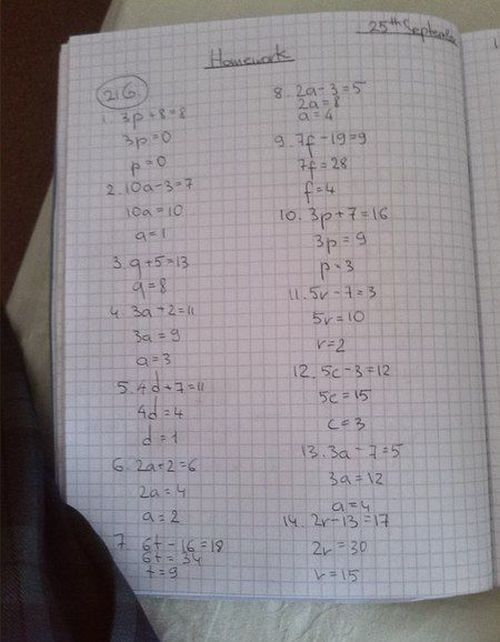 25th September
Homework
216.
1. 3p+8=8
3p=0
p=0
2. 10a-3=7
10a=10
a=1
3. q+5=13
q=8
4. 3a+2=11
3a=9
a=3
5. 4d+7=11
4d=4
d=1
6. 2a+2=6
2a=4
a=2
7. 6t-16=18
6t=34
t=9
8. 2a-3=5
2a=8
a=4
9. 7f-19=9
7f=28
f=4
10. 3p+7=16
3p=9
p=3
11. 5r-7=3
5r=10
r=2
12. 5c-3=12
5c=15
c=3
13. 3a-7=5
3a=12
a=4
14. 2r-13=17
2r=30
r=15